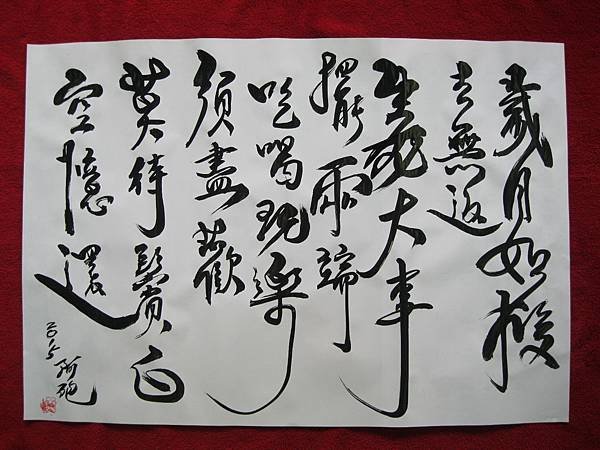 歲月如梭
去無返
生死大事
擺兩端
吃喝玩樂
須盡歡
莫待鬢白
空憶還
2015 阿